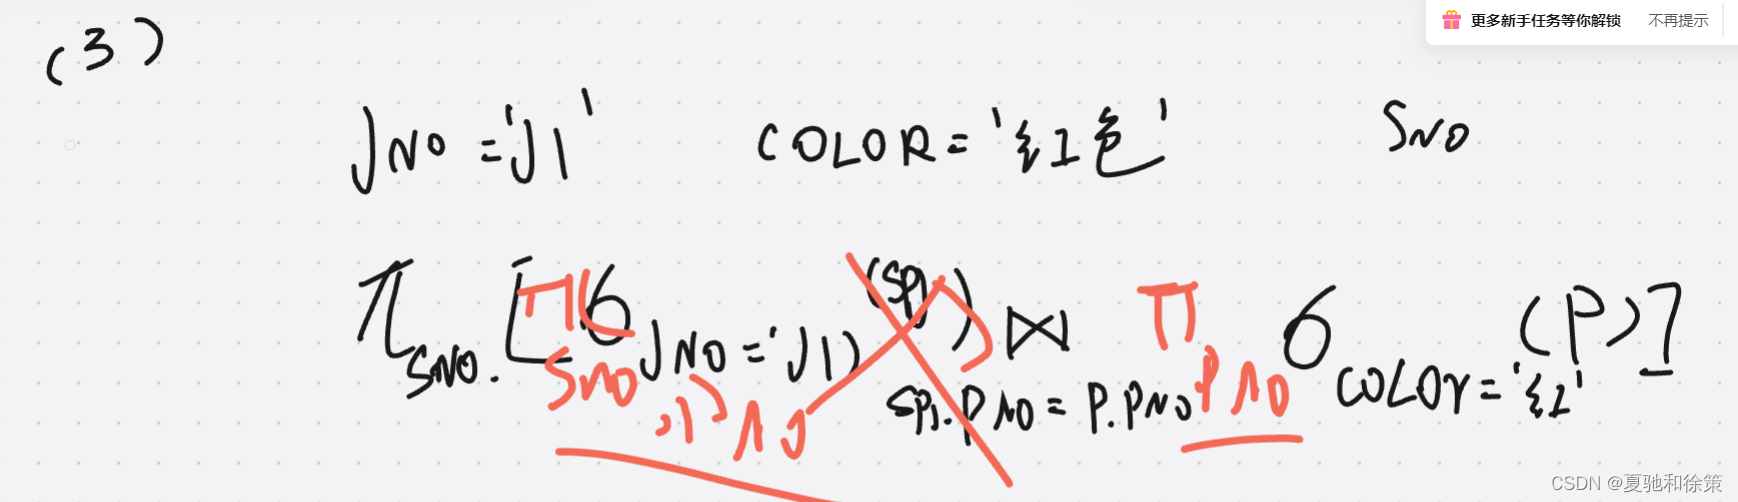 更多新手任务等你解锁 不再提示
(3)
JNO='J1' COLOR='红色' SNO
π SNO. [ σ JNO='J1' (SPJ) ⋈ SPJ.PNO=P.PNO Π PNO σ COLOR='红' (P)]
Π SNO, PNO
CSDN @夏驰和徐策